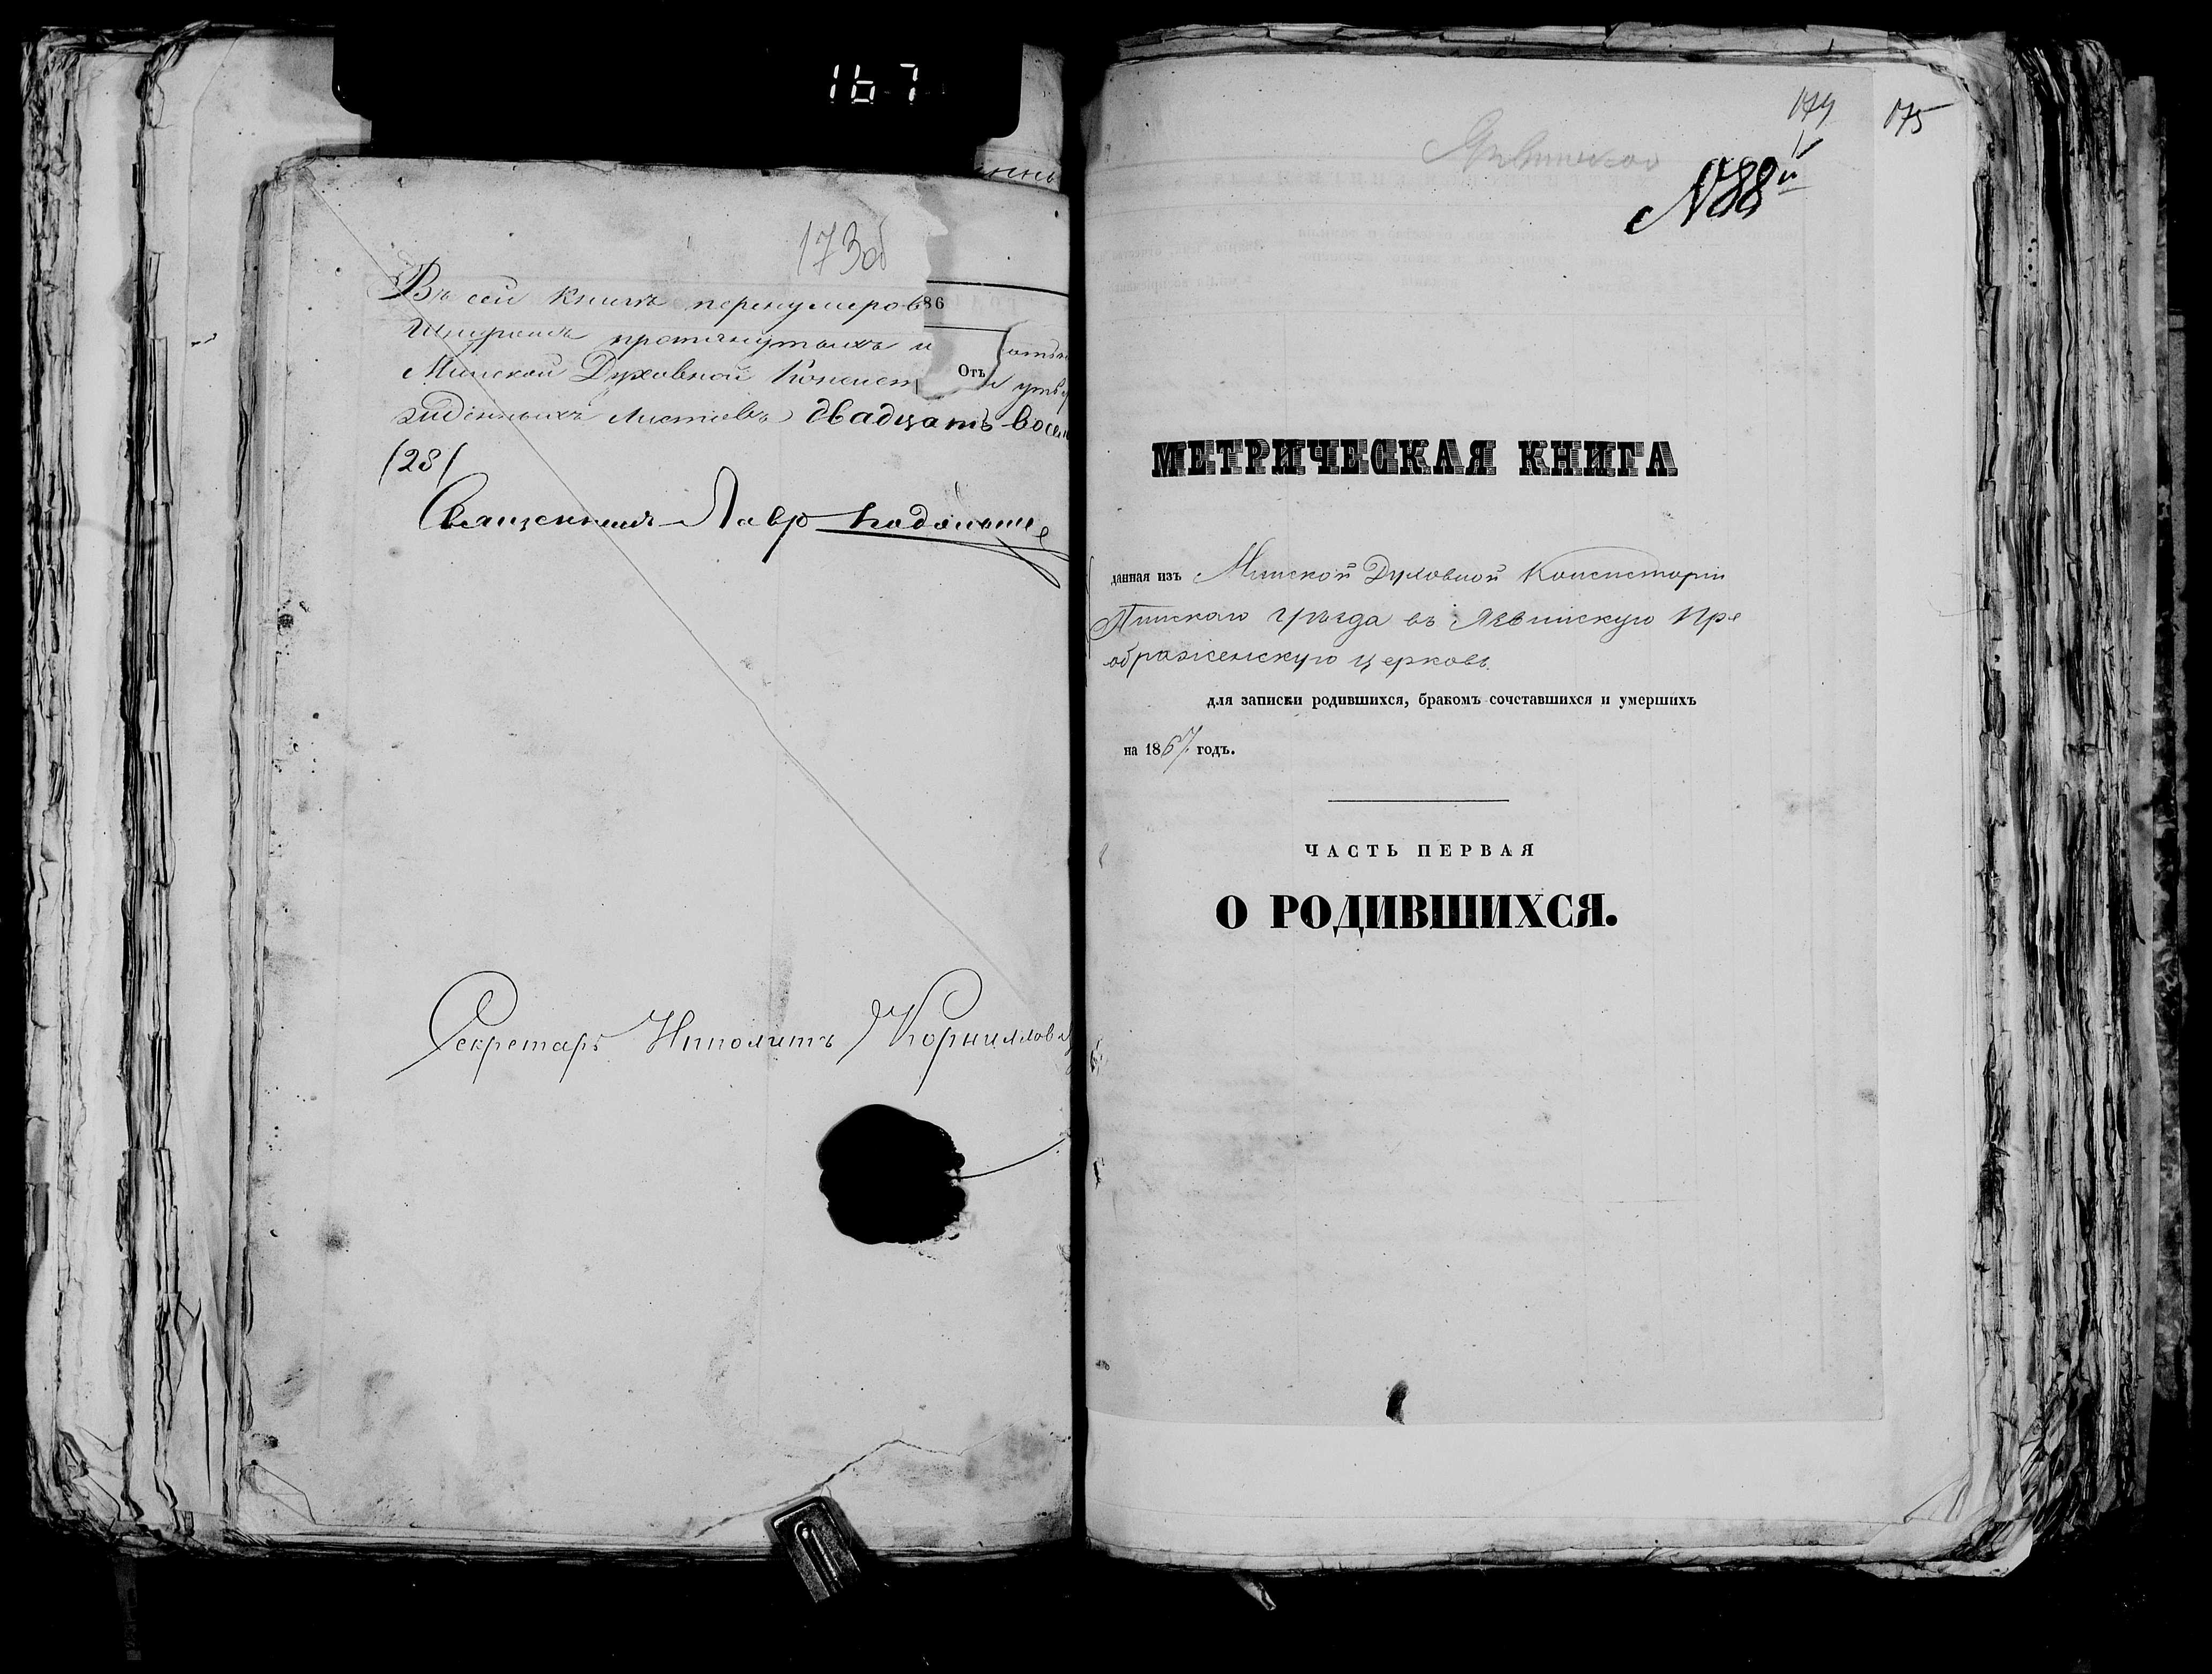 167
173об
Въ сей книгѣ перенумеров
86
Шнуромъ протянутыхъ и
Минской Духовной Консист
Отъ
утвер
жденныхъ листовъ двадцать восем
(28)
Священникъ Лавр
Секретарь Ипполитъ Корниллов
174
175
N88й
МЕТРИЧЕСКАЯ КНИГА
данная изъ Минской Духовной Консисторіи
Пинскаго уѣзда въ Язвинскую Пре
ображенскую церковь.
для записки родившихся, бракомъ сочетавшихся и умершихъ
на 1867 годъ.
ЧАСТЬ ПЕРВАЯ
О РОДИВШИХСЯ.